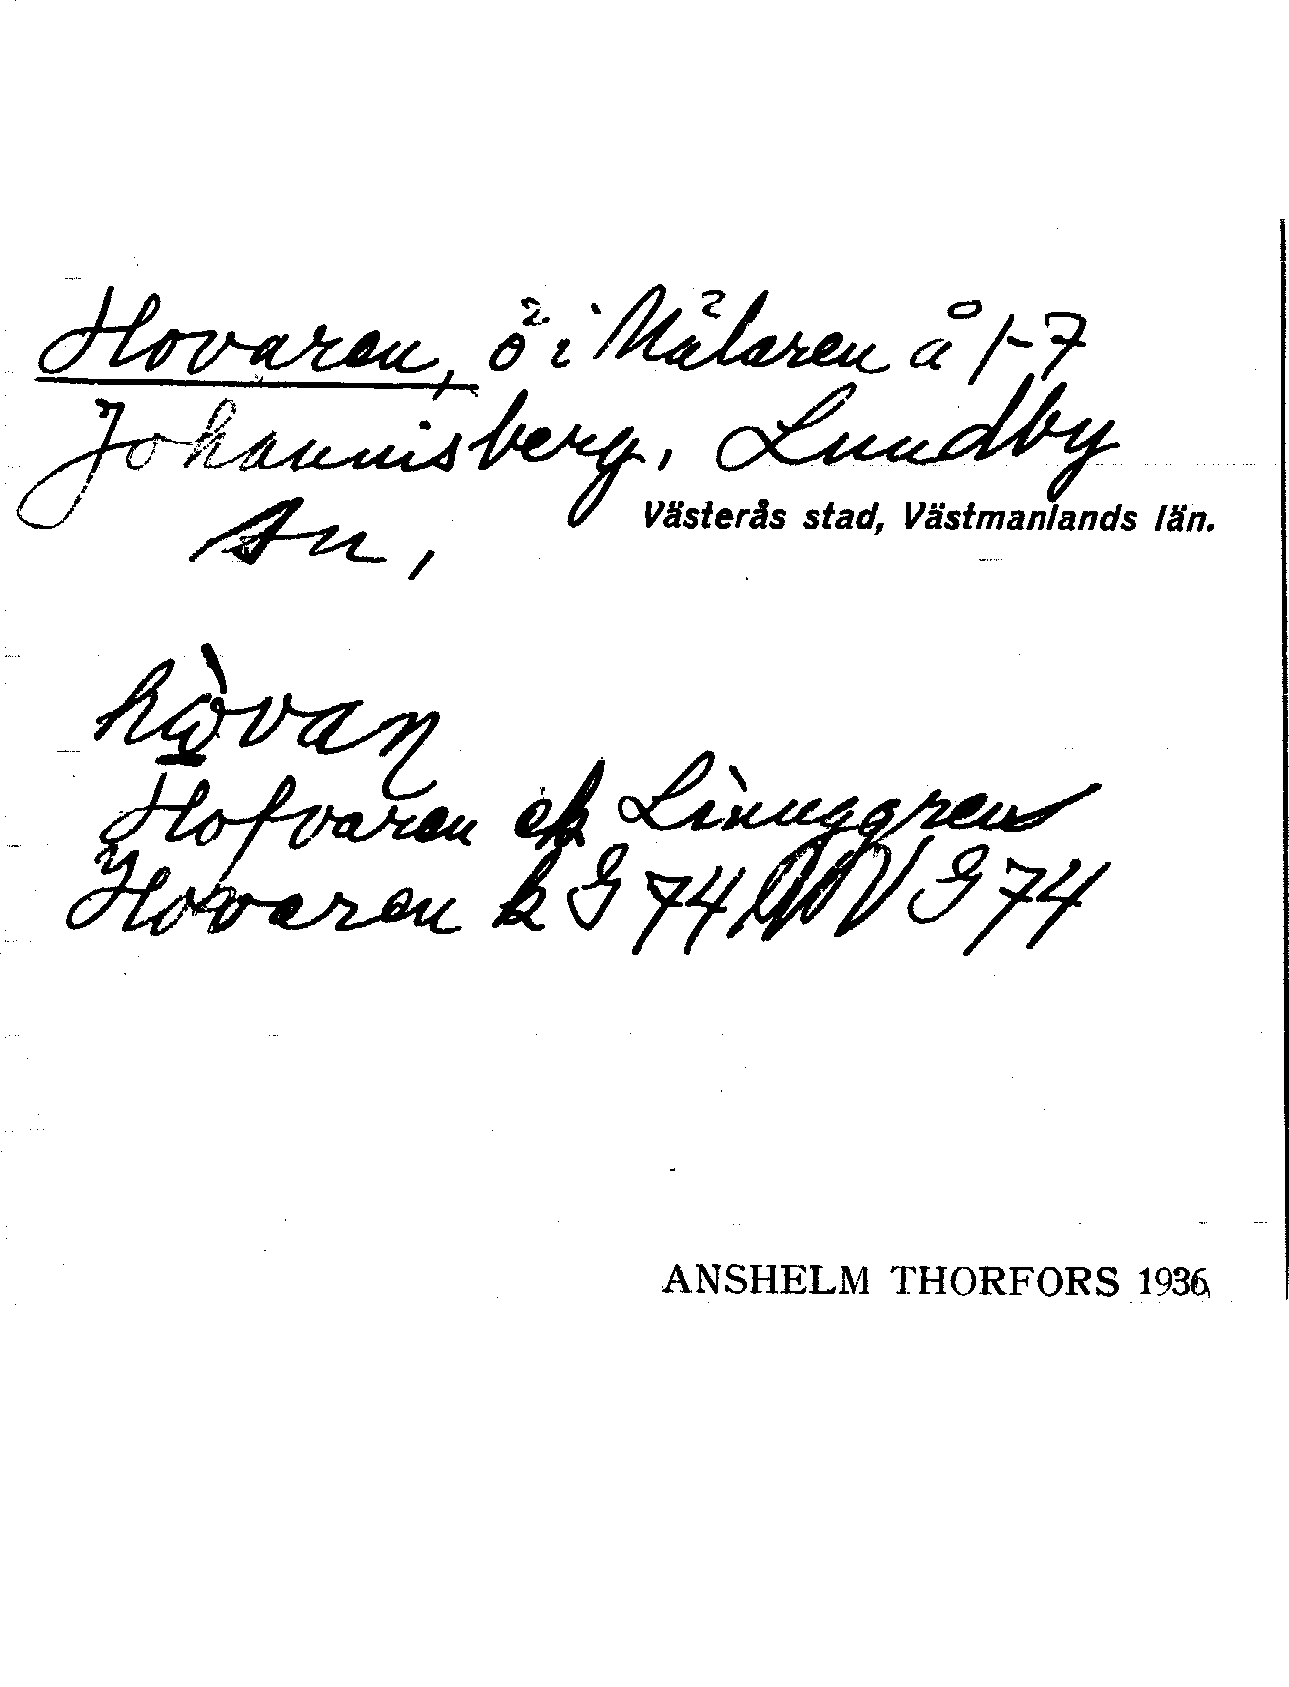 Hovaren, ö i Mälaren å 1-7
Johannisberg, Lundby
Västerås stad, Västmanlands län.
hòvan
Hofvaren ek Linnggrens
Hovaren k G 74 NV G 74
ANSHELM THORFORS 1936